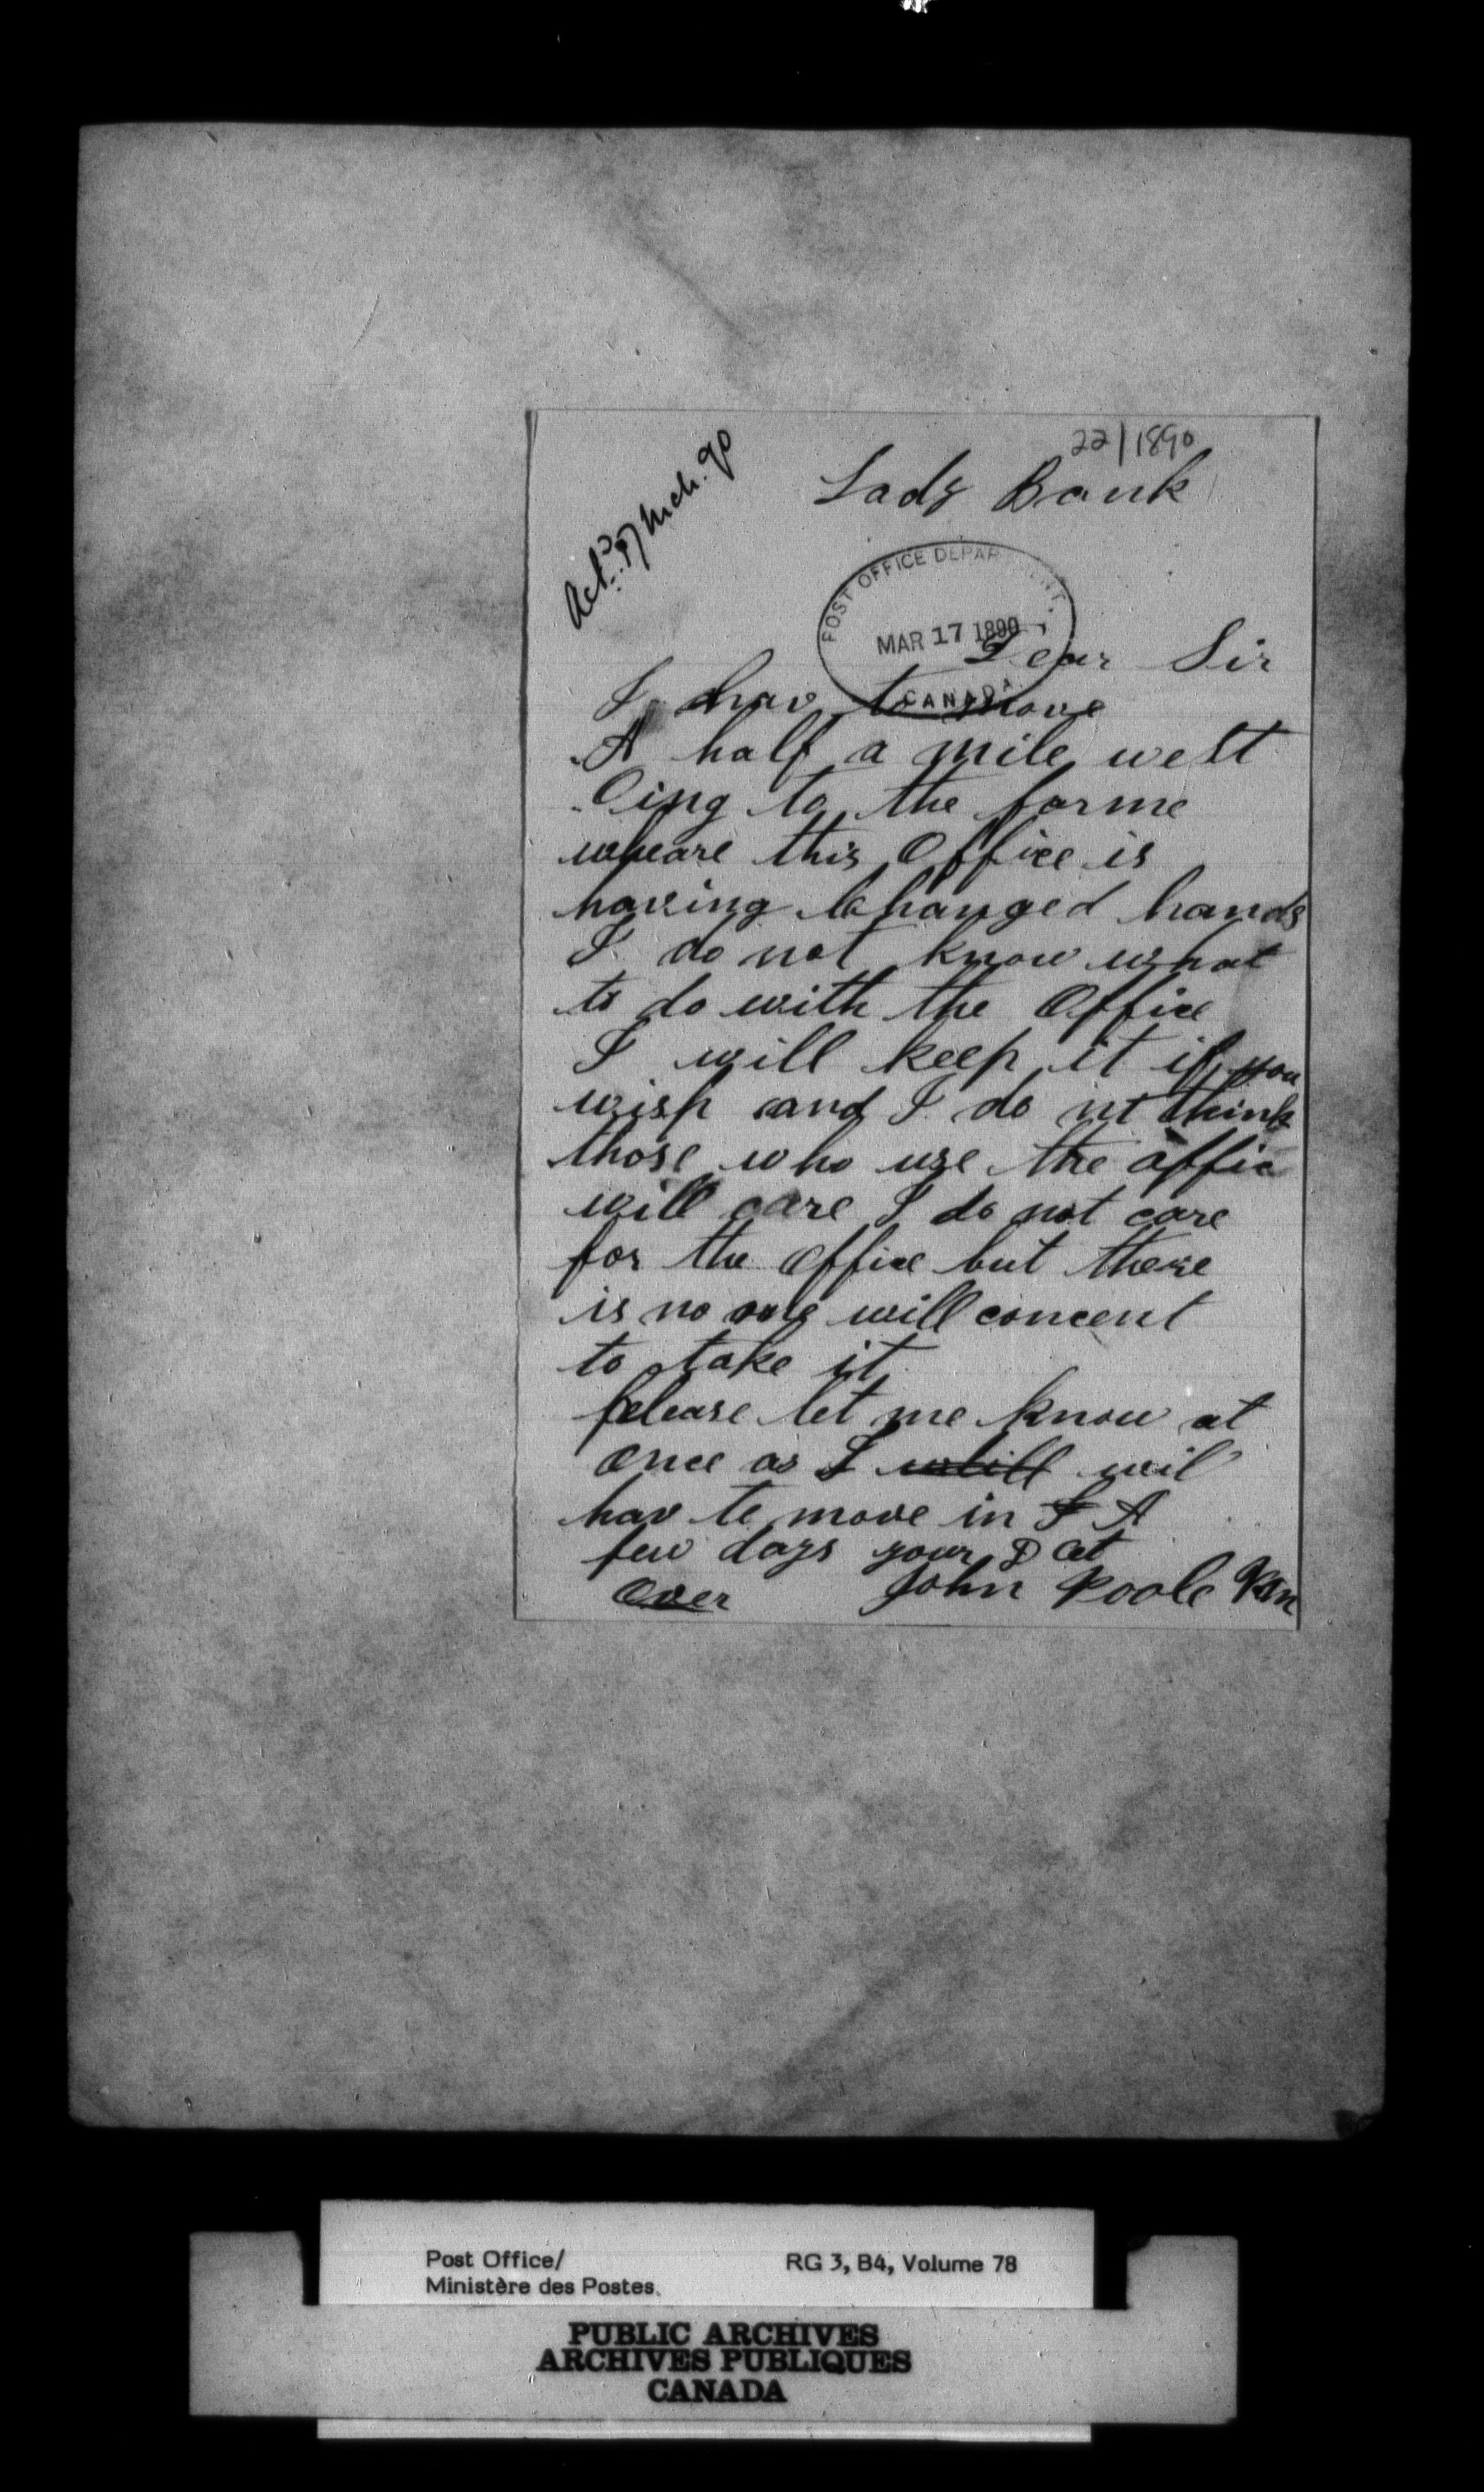 22/1890
Lady Bank
Mch. 90
POST OFFICE DEPARTMENT.
MAR 17 1890
CANADA
Dear Sir
I hav to move
A half a mile west
Oing to the farme
wheare this Office is
having Changed hands
I do not know what
to do with the Office
I will keep it if you
wish and I do nt think
those who use the offic
will care I do not care
for the Office but there
is no one will concent
to take it
pelease let me know at
Once as I will wil
hav to move in I A
few days your
Over John Poole
Post Office/ RG 3, B4, Volume 78
Ministère des Postes.
PUBLIC ARCHIVES
ARCHIVES PUBLIQUES
CANADA